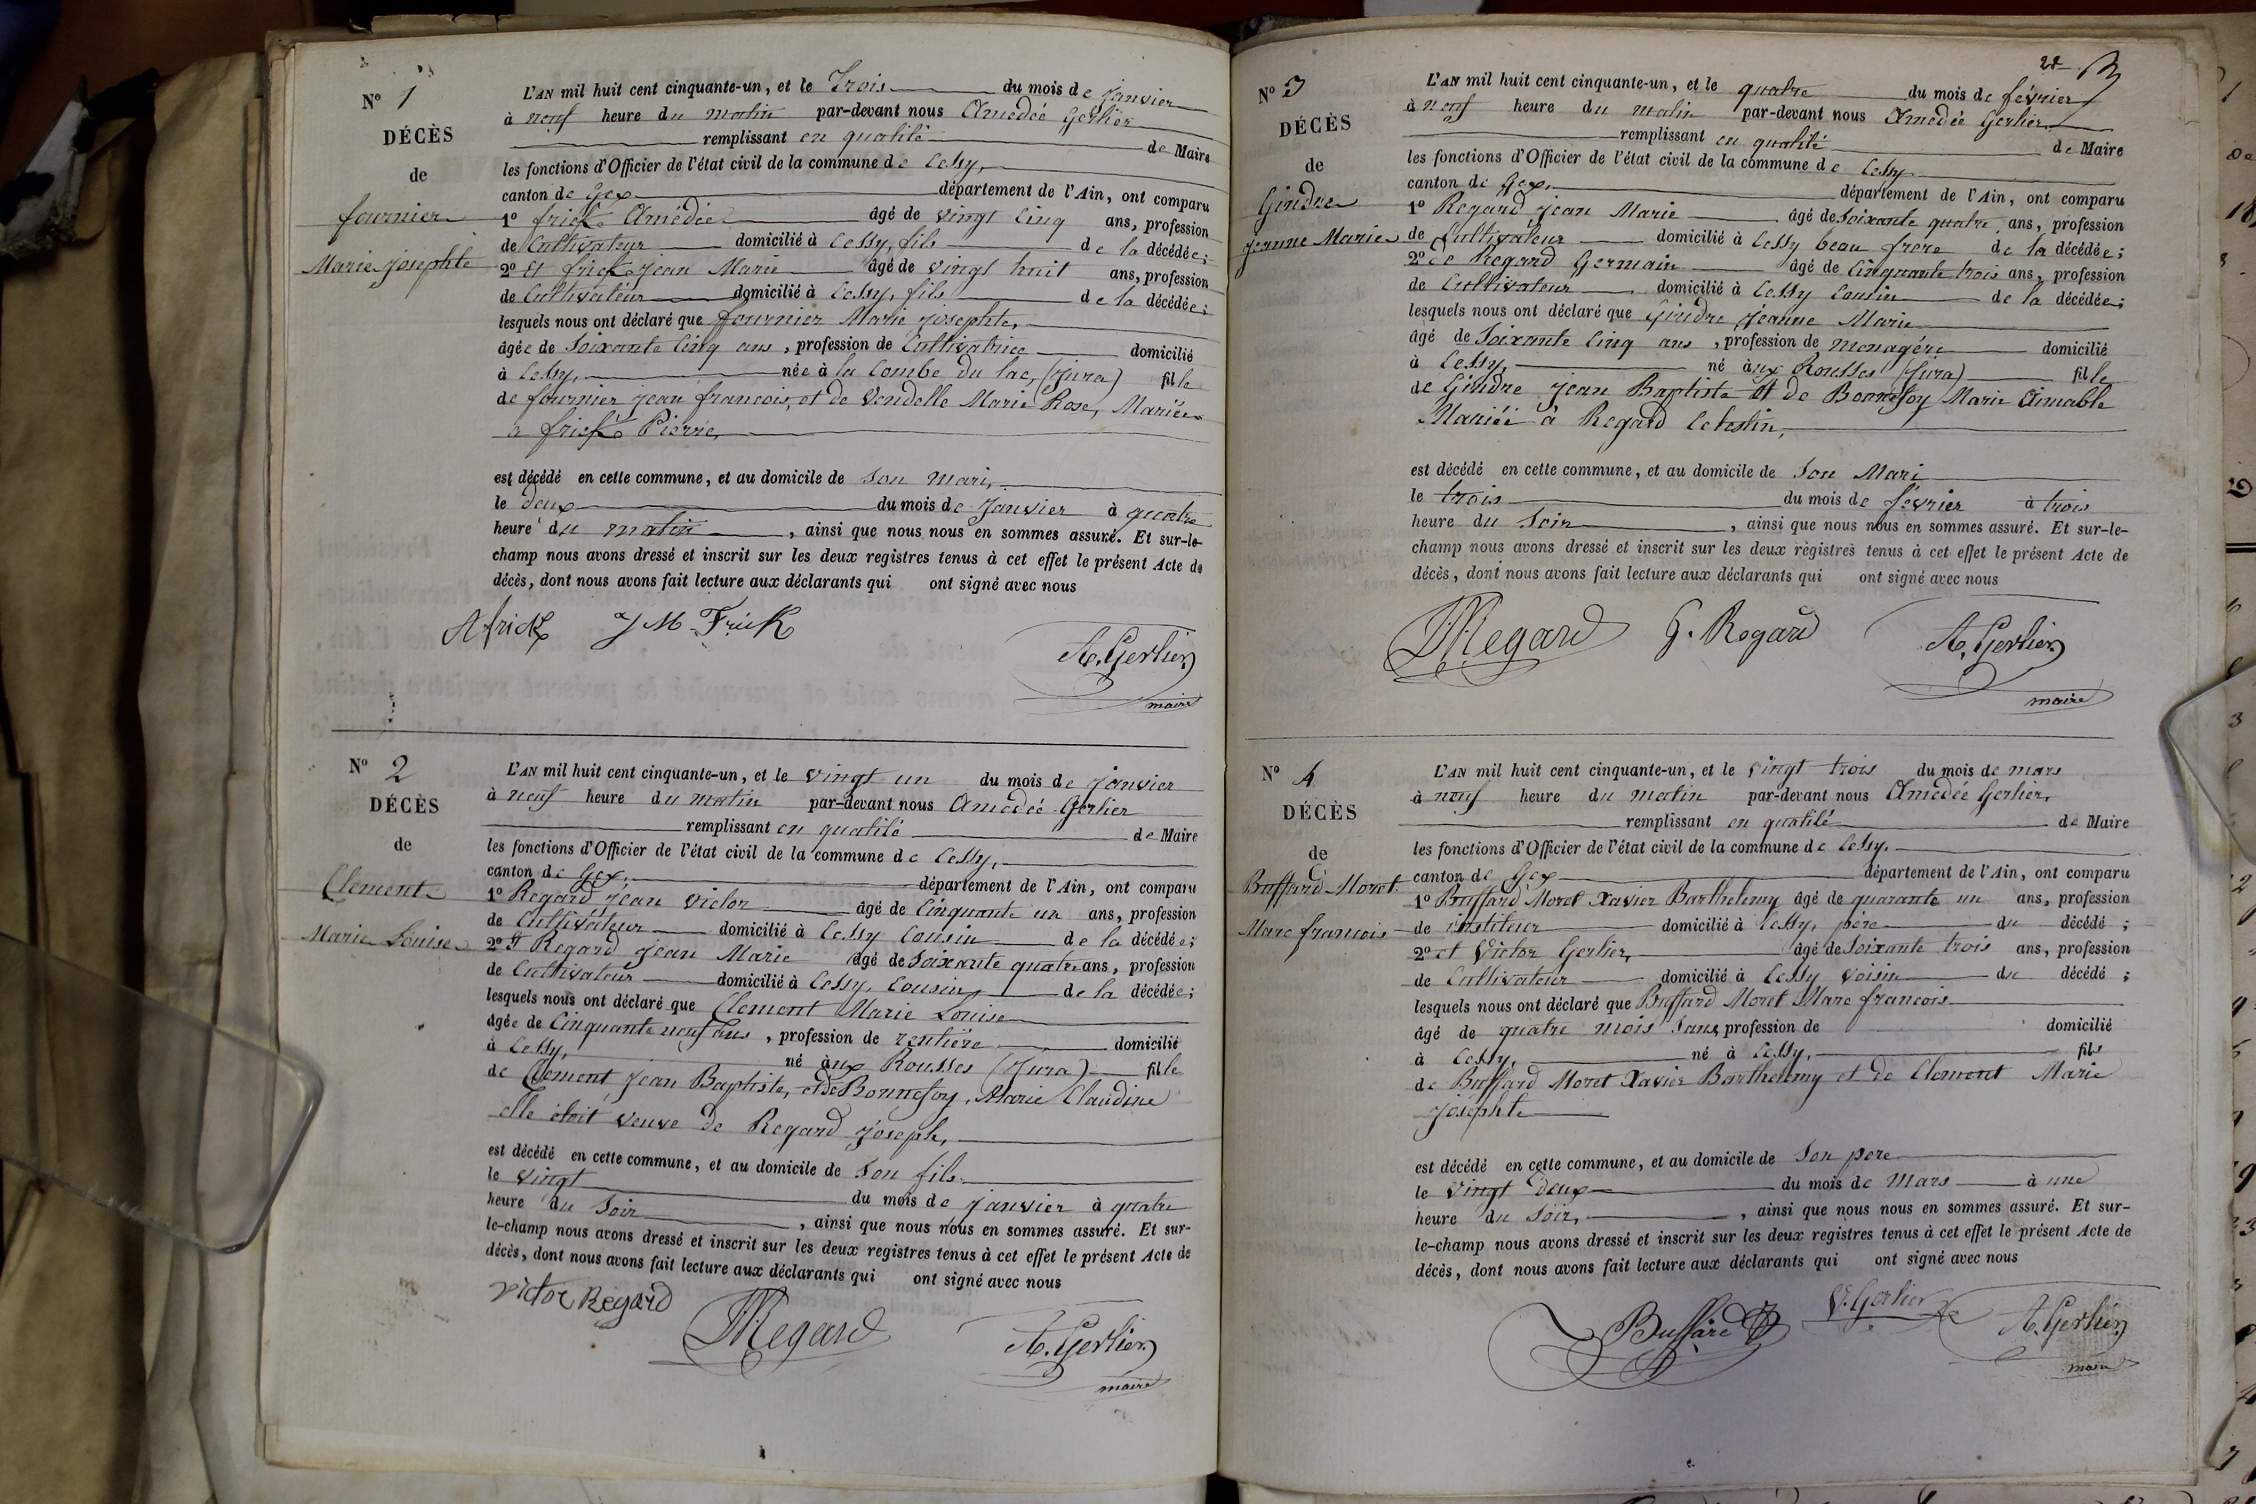 N° 1
DÉCÈS
de
fournier
Marie josephte
L'AN mil huit cent cinquante-un, et le Trois du mois de janvier
à neuf heure du matin par-devant nous Amédée Gerlier
remplissant en qualité de Maire
les fonctions d'Officier de l'état civil de la commune de Cessy,
canton de Gex département de l'Ain, ont comparu
1° frick Amédée âgé de vingt cinq ans, profession
de Cultivateur domicilié à Cessy, fils de la décédée;
2° Et frick jean Marie âgé de vingt huit ans, profession
de Cultivateur domicilié à Cessy, fils de la décédée;
lesquels nous ont déclaré que fournier Marie josephte,
âgée de Soixante cinq ans, profession de Cultivatrice domicilié
à Cessy, née à la Combe du lac, (Jura) fille
de fournier jean francois, et de Vendelle Marie Rose, Mariée
a frick Pierre,
est décédé en cette commune, et au domicile de son mari,
le deux du mois de janvier à quatre
heure du matin, ainsi que nous nous en sommes assuré. Et sur-le-
champ nous avons dressé et inscrit sur les deux registres tenus à cet effet le présent Acte de
décès, dont nous avons fait lecture aux déclarants qui ont signé avec nous
A frick J M Frick
A. Gerlier
maire
N° 2
DÉCÈS
de
Clement
Marie Louise
L'AN mil huit cent cinquante-un, et le vingt un du mois de janvier
à neuf heure du matin par-devant nous Amédée Gerlier
remplissant en qualité de Maire
les fonctions d'Officier de l'état civil de la commune de Cessy,
canton de Gex, département de l'Ain, ont comparu
1° Regard jean victor âgé de Cinquante un ans, profession
de Cultivateur domicilié à Cessy Cousin de la décédée;
2° Et Regard jean Marie âgé de Soixante quatre ans, profession
de Cultivateur domicilié à Cessy, Cousin de la décédée;
lesquels nous ont déclaré que Clement Marie Louise
âgée de Cinquante neuf ans, profession de rentière domicilié
à Cessy, né àux Rousses (Jura) fille
de Clement jean Baptiste, et de Bonnefoy, Marie Claudine
elle étoit veuve de Regard joseph,
est décédé en cette commune, et au domicile de Son fils.
le vingt du mois de janvier à quatre
heure du Soir, ainsi que nous nous en sommes assuré. Et sur-
le-champ nous avons dressé et inscrit sur les deux registres tenus à cet effet le présent Acte de
décès, dont nous avons fait lecture aux déclarants qui ont signé avec nous
victor Regard
JMRegard
A. Gerlier
maire
N° 3
DÉCÈS
de
Gindre
jeanne Marie
L'AN mil huit cent cinquante-un, et le quatre du mois de février
à neuf heure du matin par-devant nous Amédée Gerlier
remplissant en qualité de Maire
les fonctions d'Officier de l'état civil de la commune de Cessy
canton de Gex, département de l'Ain, ont comparu
1° Regard jean Marie âgé de Soixante quatre ans, profession
de Cultivateur domicilié à Cessy beau frere de la décédée;
2° Regard Germain âgé de Cinquante trois ans, profession
de Cultivateur domicilié à Cessy Cousin de la décédée;
lesquels nous ont déclaré que Gindre Jeanne Marie
âgé de Soixante cinq ans, profession de menagère domicilié
à Cessy, né àux Rousses (Jura) fille
de Gindre jean Baptiste Et de Bonnefoy Marie Aimable
Mariéé à Regard Celestin,
est décédé en cette commune, et au domicile de Son Mari
le trois du mois de février à trois
heure du Soir, ainsi que nous nous en sommes assuré. Et sur-le-
champ nous avons dressé et inscrit sur les deux règistres tenus à cet effet le présent Acte de
décès, dont nous avons fait lecture aux déclarants qui ont signé avec nous
JMRegard G. Regard
A. Gerlier
maire
N° 4
DÉCÈS
de
Buffard-Moret
Marc francois
L'AN mil huit cent cinquante-un, et le vingt trois du mois de mars
à neuf heure du matin par-devant nous Amédée Gerlier,
remplissant en qualité de Maire
les fonctions d'Officier de l'état civil de la commune de Cessy.
canton de Gex département de l'Ain, ont comparu
1° Buffard Moret Xavier Barthelemy âgé de quarante un ans, profession
de institeur domicilié à Cessy, père du décédé;
2° et Victor Gerlier, âgé de Soixante trois ans, profession
de Cultivateur domicilié à Cessy voisin du décédé;
lesquels nous ont déclaré que Buffard Moret Marc francois
âgé de quatre mois Sans profession de domicilié
à Cessy, né à Cessy, fils
de Buffard Moret Xavier Barthelemy et de Clement Marie
josephte
est décédé en cette commune, et au domicile de Son pere
le vingt deux du mois de Mars à une
heure du Soir, ainsi que nous nous en sommes assuré. Et sur-
le-champ nous avons dressé et inscrit sur les deux registres tenus à cet effet le présent Acte de
décès, dont nous avons fait lecture aux déclarants qui ont signé avec nous
Buffard
V. Gerlier
A. Gerlier
maire